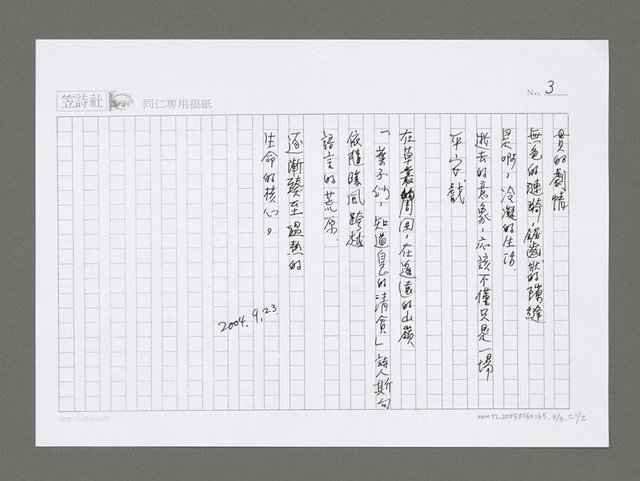 笠詩社
同仁專用稿紙
No. 3
的劇情
無色的漣漪，鋸齒狀的隙縫
是啊，冷凝的生活
逝去的意象，應該不僅只是一場
平安戲
在草叢的周圍，在遙遠的山嶺
「葉子們，知道自己的清貧」詩人斯句
依隨暖風跨越
語言的荒原
逐漸臻至溫熱的
生命的核心。
2004.9.23.
NMTL20050060165. 3/3. C1/2